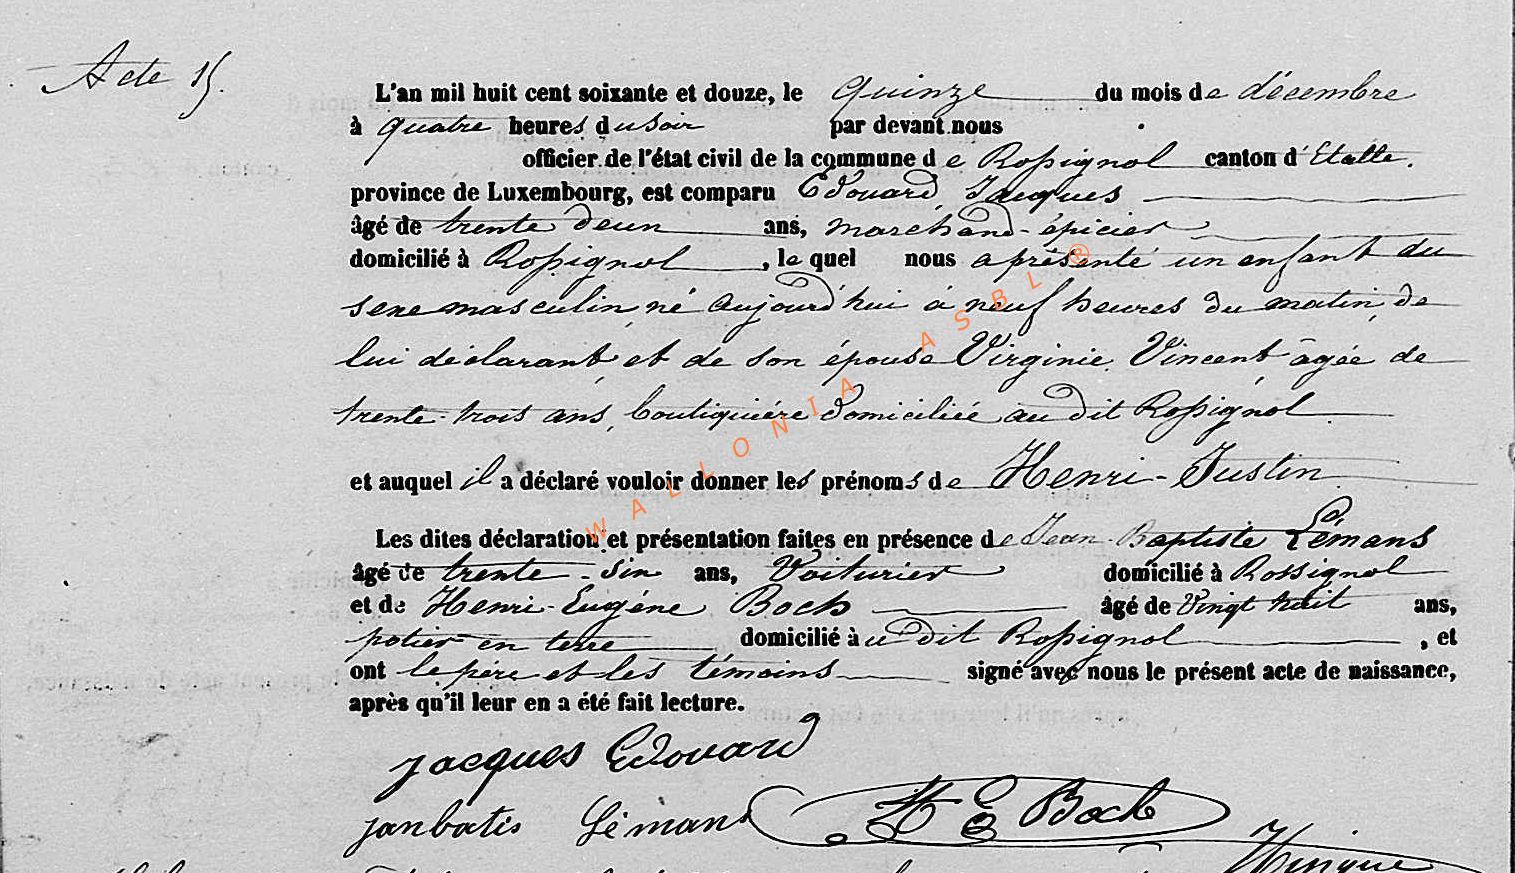 Acte 15.
L'an mil huit cent soixante et douze, le quinze du mois de décembre
à quatre heures du soir par devant nous
officier de l'état civil de la commune de Rossignol canton d'Etalle.
province de Luxembourg, est comparu Edouard Jacques
âgé de trente deux ans, marchand-épicier
domicilié à Rossignol, lequel nous a présenté un enfant du
sexe masculin, né aujourd'hui à neuf heures du matin, de
lui déclarant et de son épouse Virginie Vincent âgée de
trente-trois ans, boutiquière domiciliée au dit Rossignol
et auquel il a déclaré vouloir donner les prénoms de Henri-Justin
Les dites déclaration et présentation faites en présence de Jean-Baptiste Lémans
âgé de trente-six ans, Voiturier domicilié à Rossignol
et de Henri-Eugène Boch âgé de vingt huit ans,
potier en terre domicilié au dit Rossignol, et
ont le père et les témoins signé avec nous le présent acte de naissance,
après qu'il leur en a été fait lecture.
jacques Edouard
janbatis Lémans H E Boch
WALLONIA ASBL ®